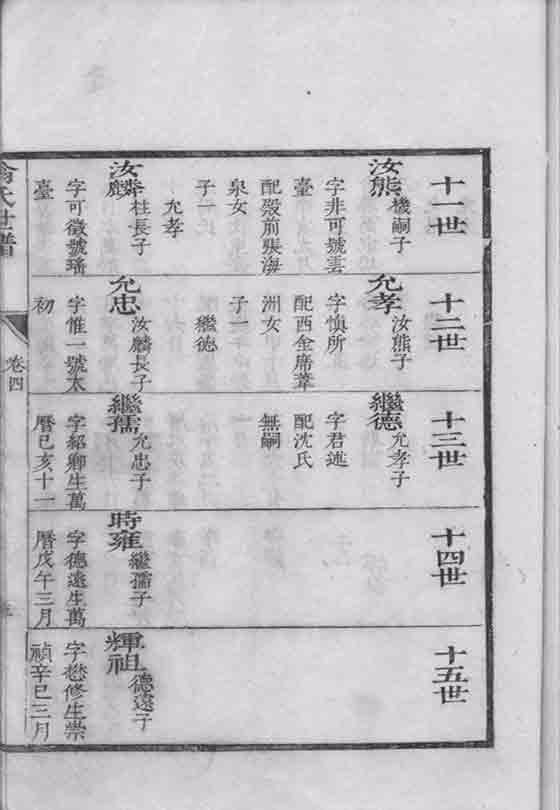 十一世
汝熊 機嗣子
字非可號雲
臺
配殷前張海
泉女
子一
允孝
汝麟 柱長子
字可徵號瑤
臺
十二世
允孝 汝熊子
字慎所
配西金席葦
洲女
子一
繼德
允忠 汝麟長子
字惟一號太
初
十三世
繼德 允孝子
字君述
配沈氏
無嗣
繼孺 允忠子
字紹卿生萬
曆己亥十一
十四世
時雍 繼孺子
字德遠生萬
曆戊午三月
十五世
輝祖 德遠子
字懋修生崇
禎辛巳三月
氏世譜
卷四